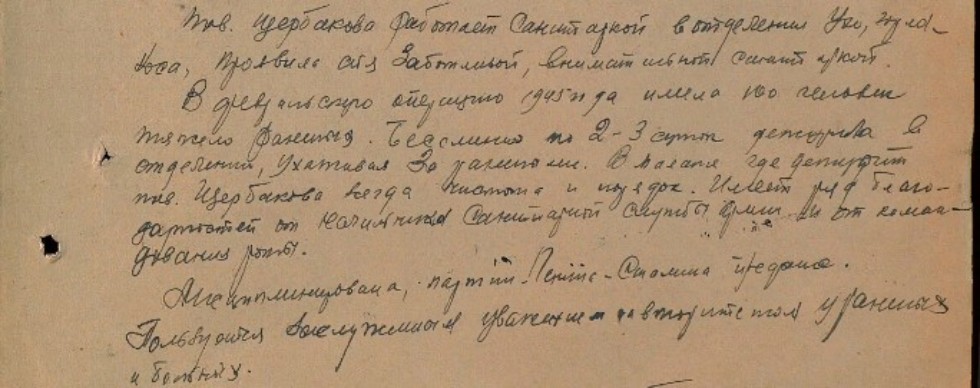 Тов. Щербакова работает санитаркой в отделении Ухо, горла-
Носа, проявила себя заботливой, внимательной санитаркой.
В февральскую операцию 1945 года имела 100 человек
тяжело раненых. Бессменно по 2-3 суток дежурила в
отделении, ухаживая за ранеными. В палате где дежурит
тов. Щербакова везде чистота и порядок. Имеет ряд благо-
дарностей от начальника санитарной службы армии и от коман-
дования роты.
Дисциплинирована, партии Ленина-Сталина предана.
Пользуется заслуженным уважением и авторитетом у раненых
и больных.